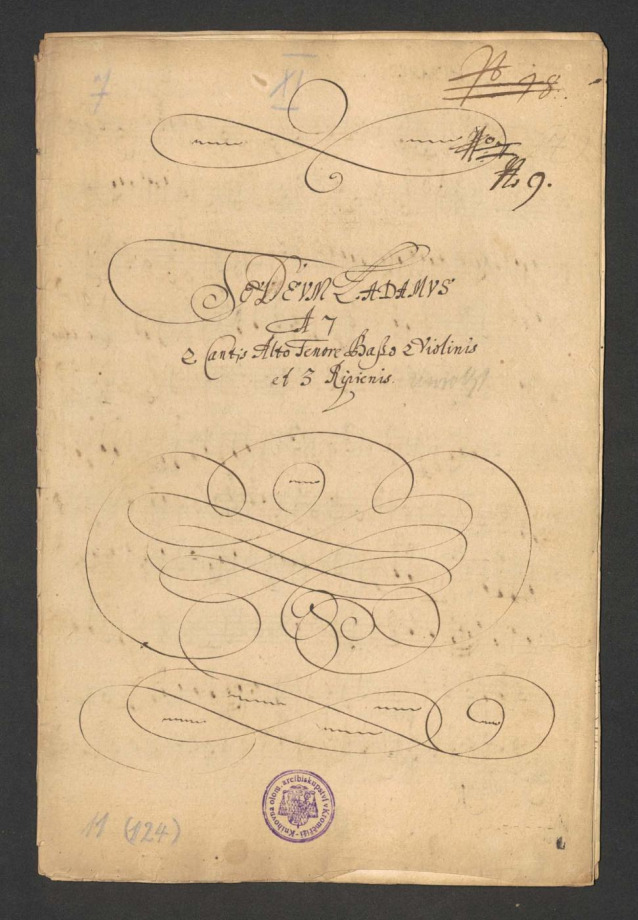 7
XI
No 18.
No 7
No 9.
Te DEVM LADAMVS
A 7
2 Cantis Alto Tenore Basso 2 Violinis
et 3 Ripienis.
11 (124)
Knihovna olom. arcibiskupství v Kroměříži